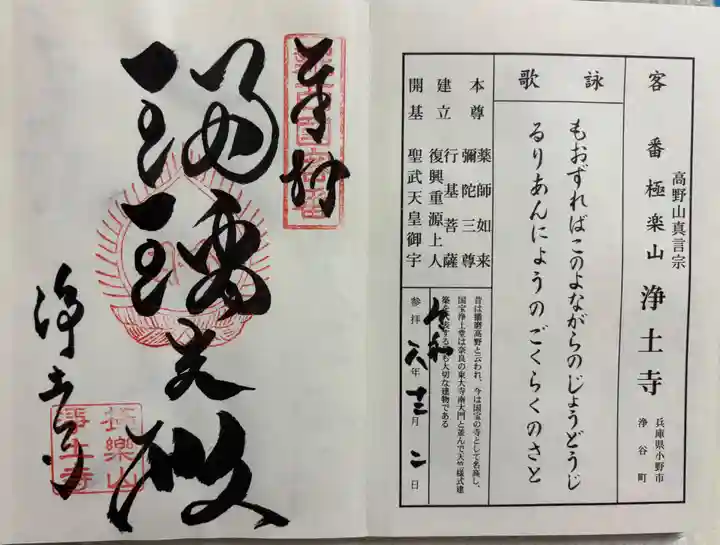 客番
高野山真言宗
極楽山 浄土寺
兵庫県小野市
浄谷町
詠歌
もおずればこのよながらのじょうどうじ
るりあんにょうのごくらくのさと
本尊 薬師如来
彌陀三尊
建立 行基菩薩
復興重源上人
開基 聖武天皇御宇
昔は播磨高野と云われ、今は国宝の寺として名高し、
国宝浄土堂は奈良の東大寺南大門と並んで天竺様式建
築を代表する最も大切な建物である
参拝 令和六年十二月二日
奉拝
瑠璃光殿
浄土寺
極樂山
浄土寺